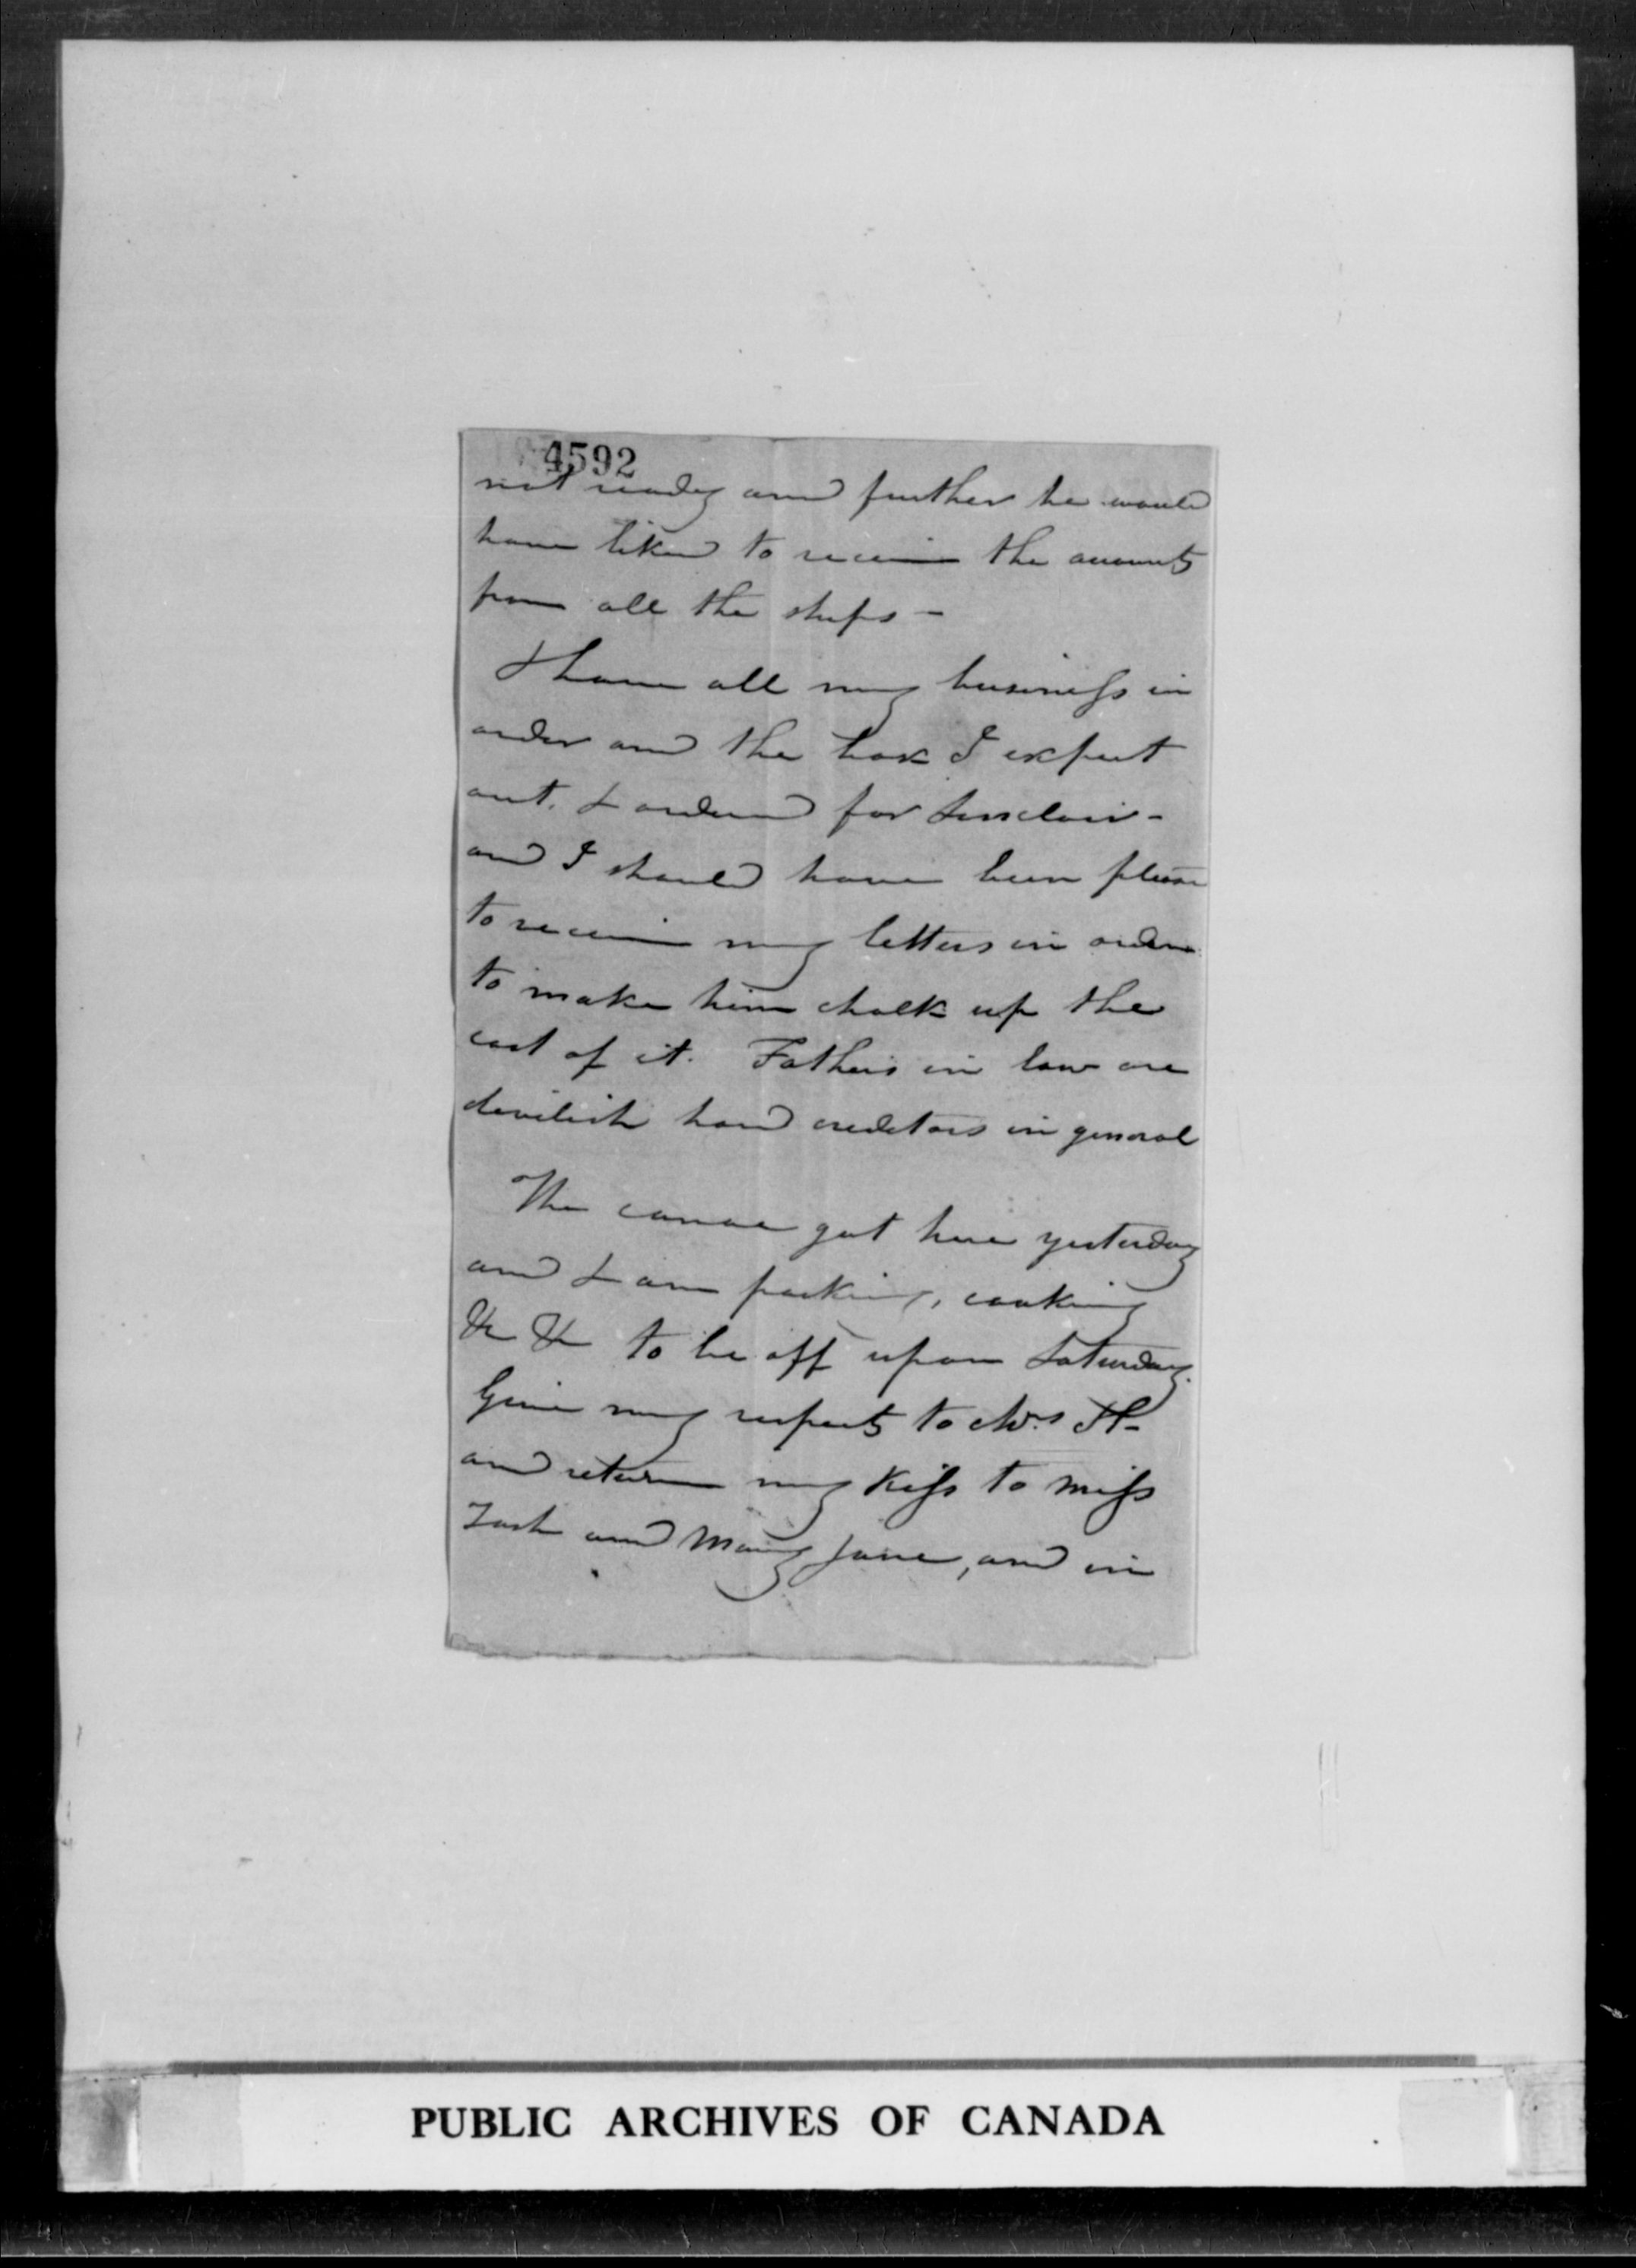 4592
not ready and further he would
have liked to receive the accounts
from all the ships -
I have all my business in
order and the box I expect
out. I ordered for Sinclair -
and I should have been pleased
to receive my letters in order
to make him chalk up the
cost of it. Fathers in law are
devilish hard creditors in general
The canoe got here yesterday
and I am packing, cooking
&c &c to be off upon Saturday.
Give my respects to Mrs H-
and return my kiss to miss
and Mary Jane, and in
PUBLIC ARCHIVES OF CANADA